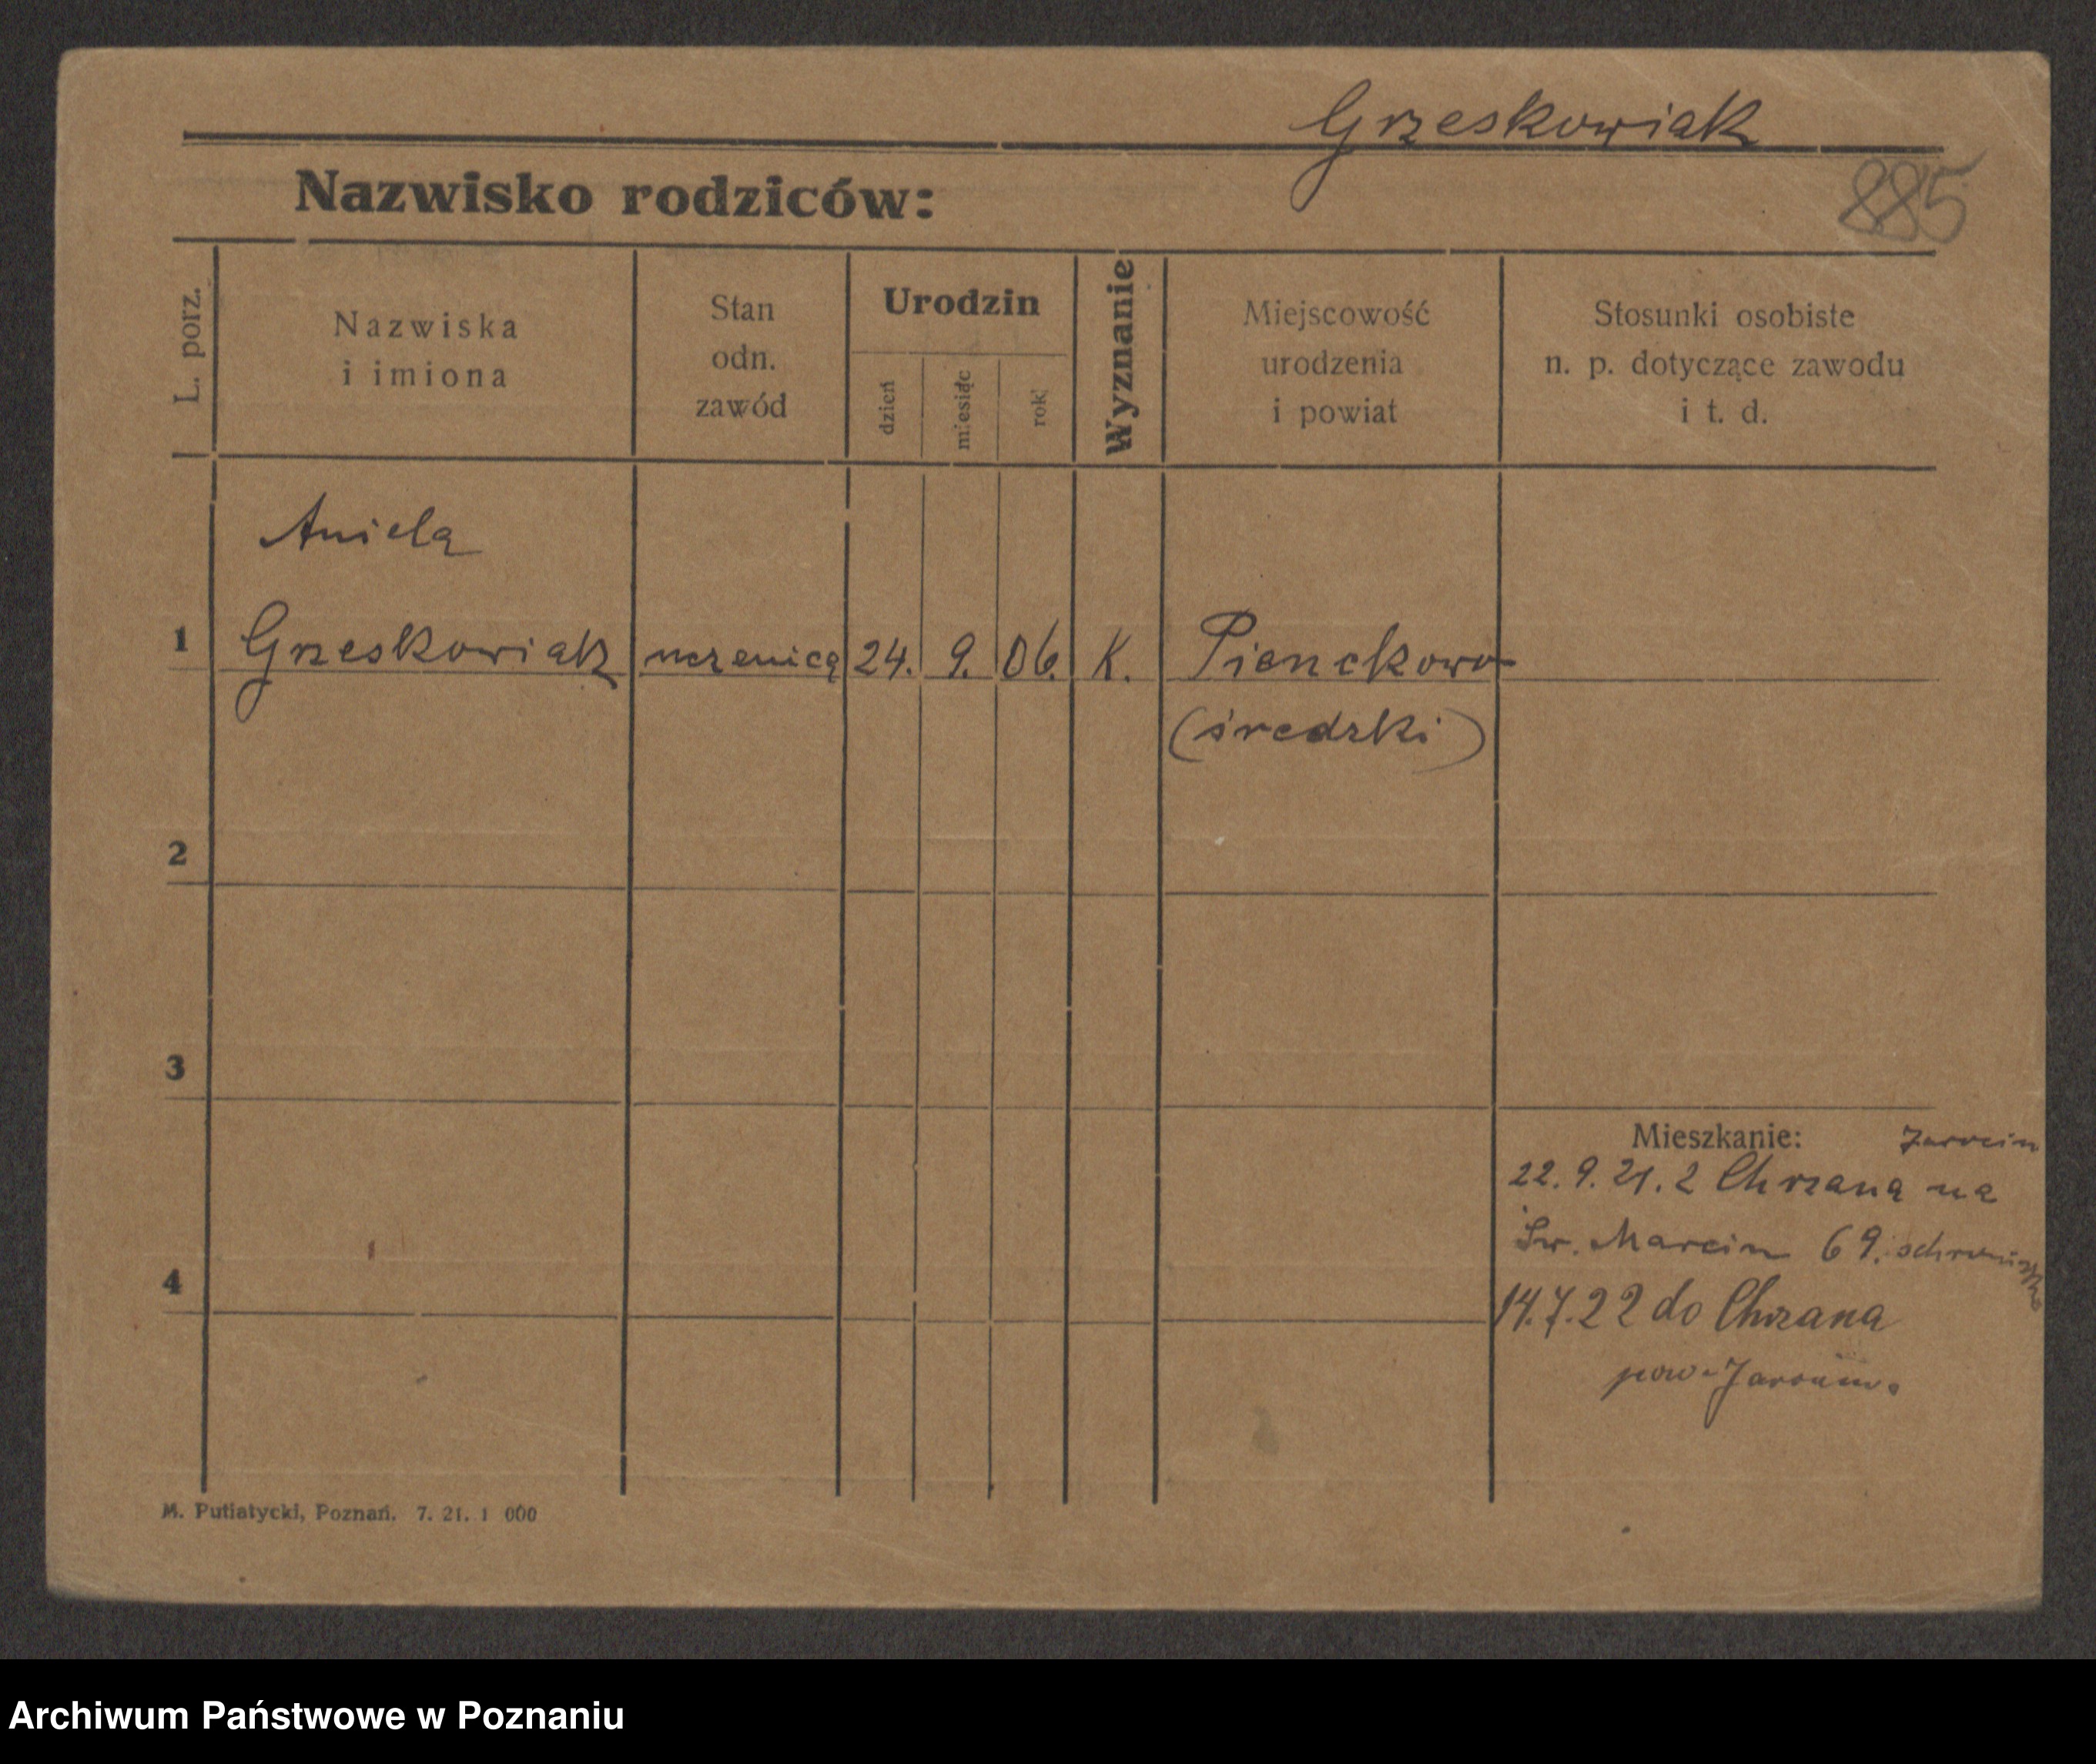 Grzeskowiak
885
Nazwisko rodziców:
L. porz.
Nazwiska
i imiona
Stan
odn.
zawód
Urodzin
dzień
miesiąc
rok
Wyznanie
Miejscowość
urodzenia
i powiat
Stosunki osobiste
n. p. dotyczące zawodu
i t. d.
Aniela
1 Grzeskowiak uczenica 24. 9. 06. K. Pienckowo
(średzki)
2
3
Mieszkanie: Jarocin
22. 9. 21. z Chrzana na
Św. Marcin 69. schronisko
4
14.7.22 do Chrzana
pow. Jarocin.
M. Putiatycki, Poznań. 7. 21. 1 000
Archiwum Państwowe w Poznaniu